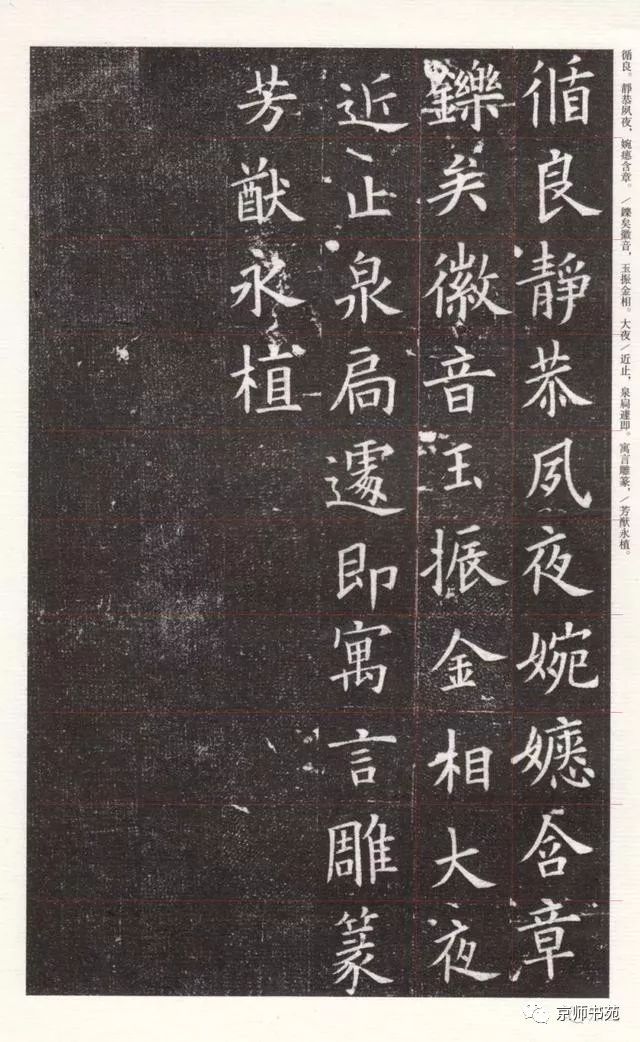 循良。靜恭夙夜，婉嫕含章。／鑠矣徽音，玉振金相。大夜／近止，泉扃遽即。寓言雕篆，／芳猷永植。
循良靜恭夙夜婉嫕含章
鑠矣徽音玉振金相大夜
近止泉扃遽即寓言雕篆
芳猷永植
京师书苑